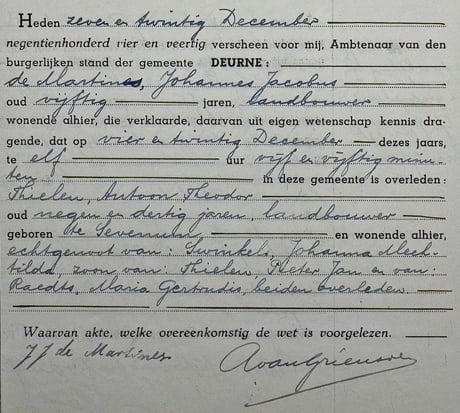 Heden zeven en twintig December
negentienhonderd vier en veertig verscheen voor mij, Ambtenaar van den
burgerlijken stand der gemeente DEURNE:
de Martines, Johannes Jacobus
oud vijftig jaren, landbouwer
wonende alhier, die verklaarde, daarvan uit eigen wetenschap kennis dra-
gende, dat op vier en twintig December dezes jaars,
te elf uur vijf en vijftig minu-
ten in deze gemeente is overleden:
Thielen, Antoon Theodor
oud negen en dertig jaren, landbouwer
geboren te Sevenum, en wonende alhier,
echtgenoot van: Swinkels, Johanna Mech-
tilda, zoon van: Thielen, Pieter Jan en van:
Raedts, Maria Gertrudis, beiden overleden.
Waarvan akte, welke overeenkomstig de wet is voorgelezen.
JJ de Martines